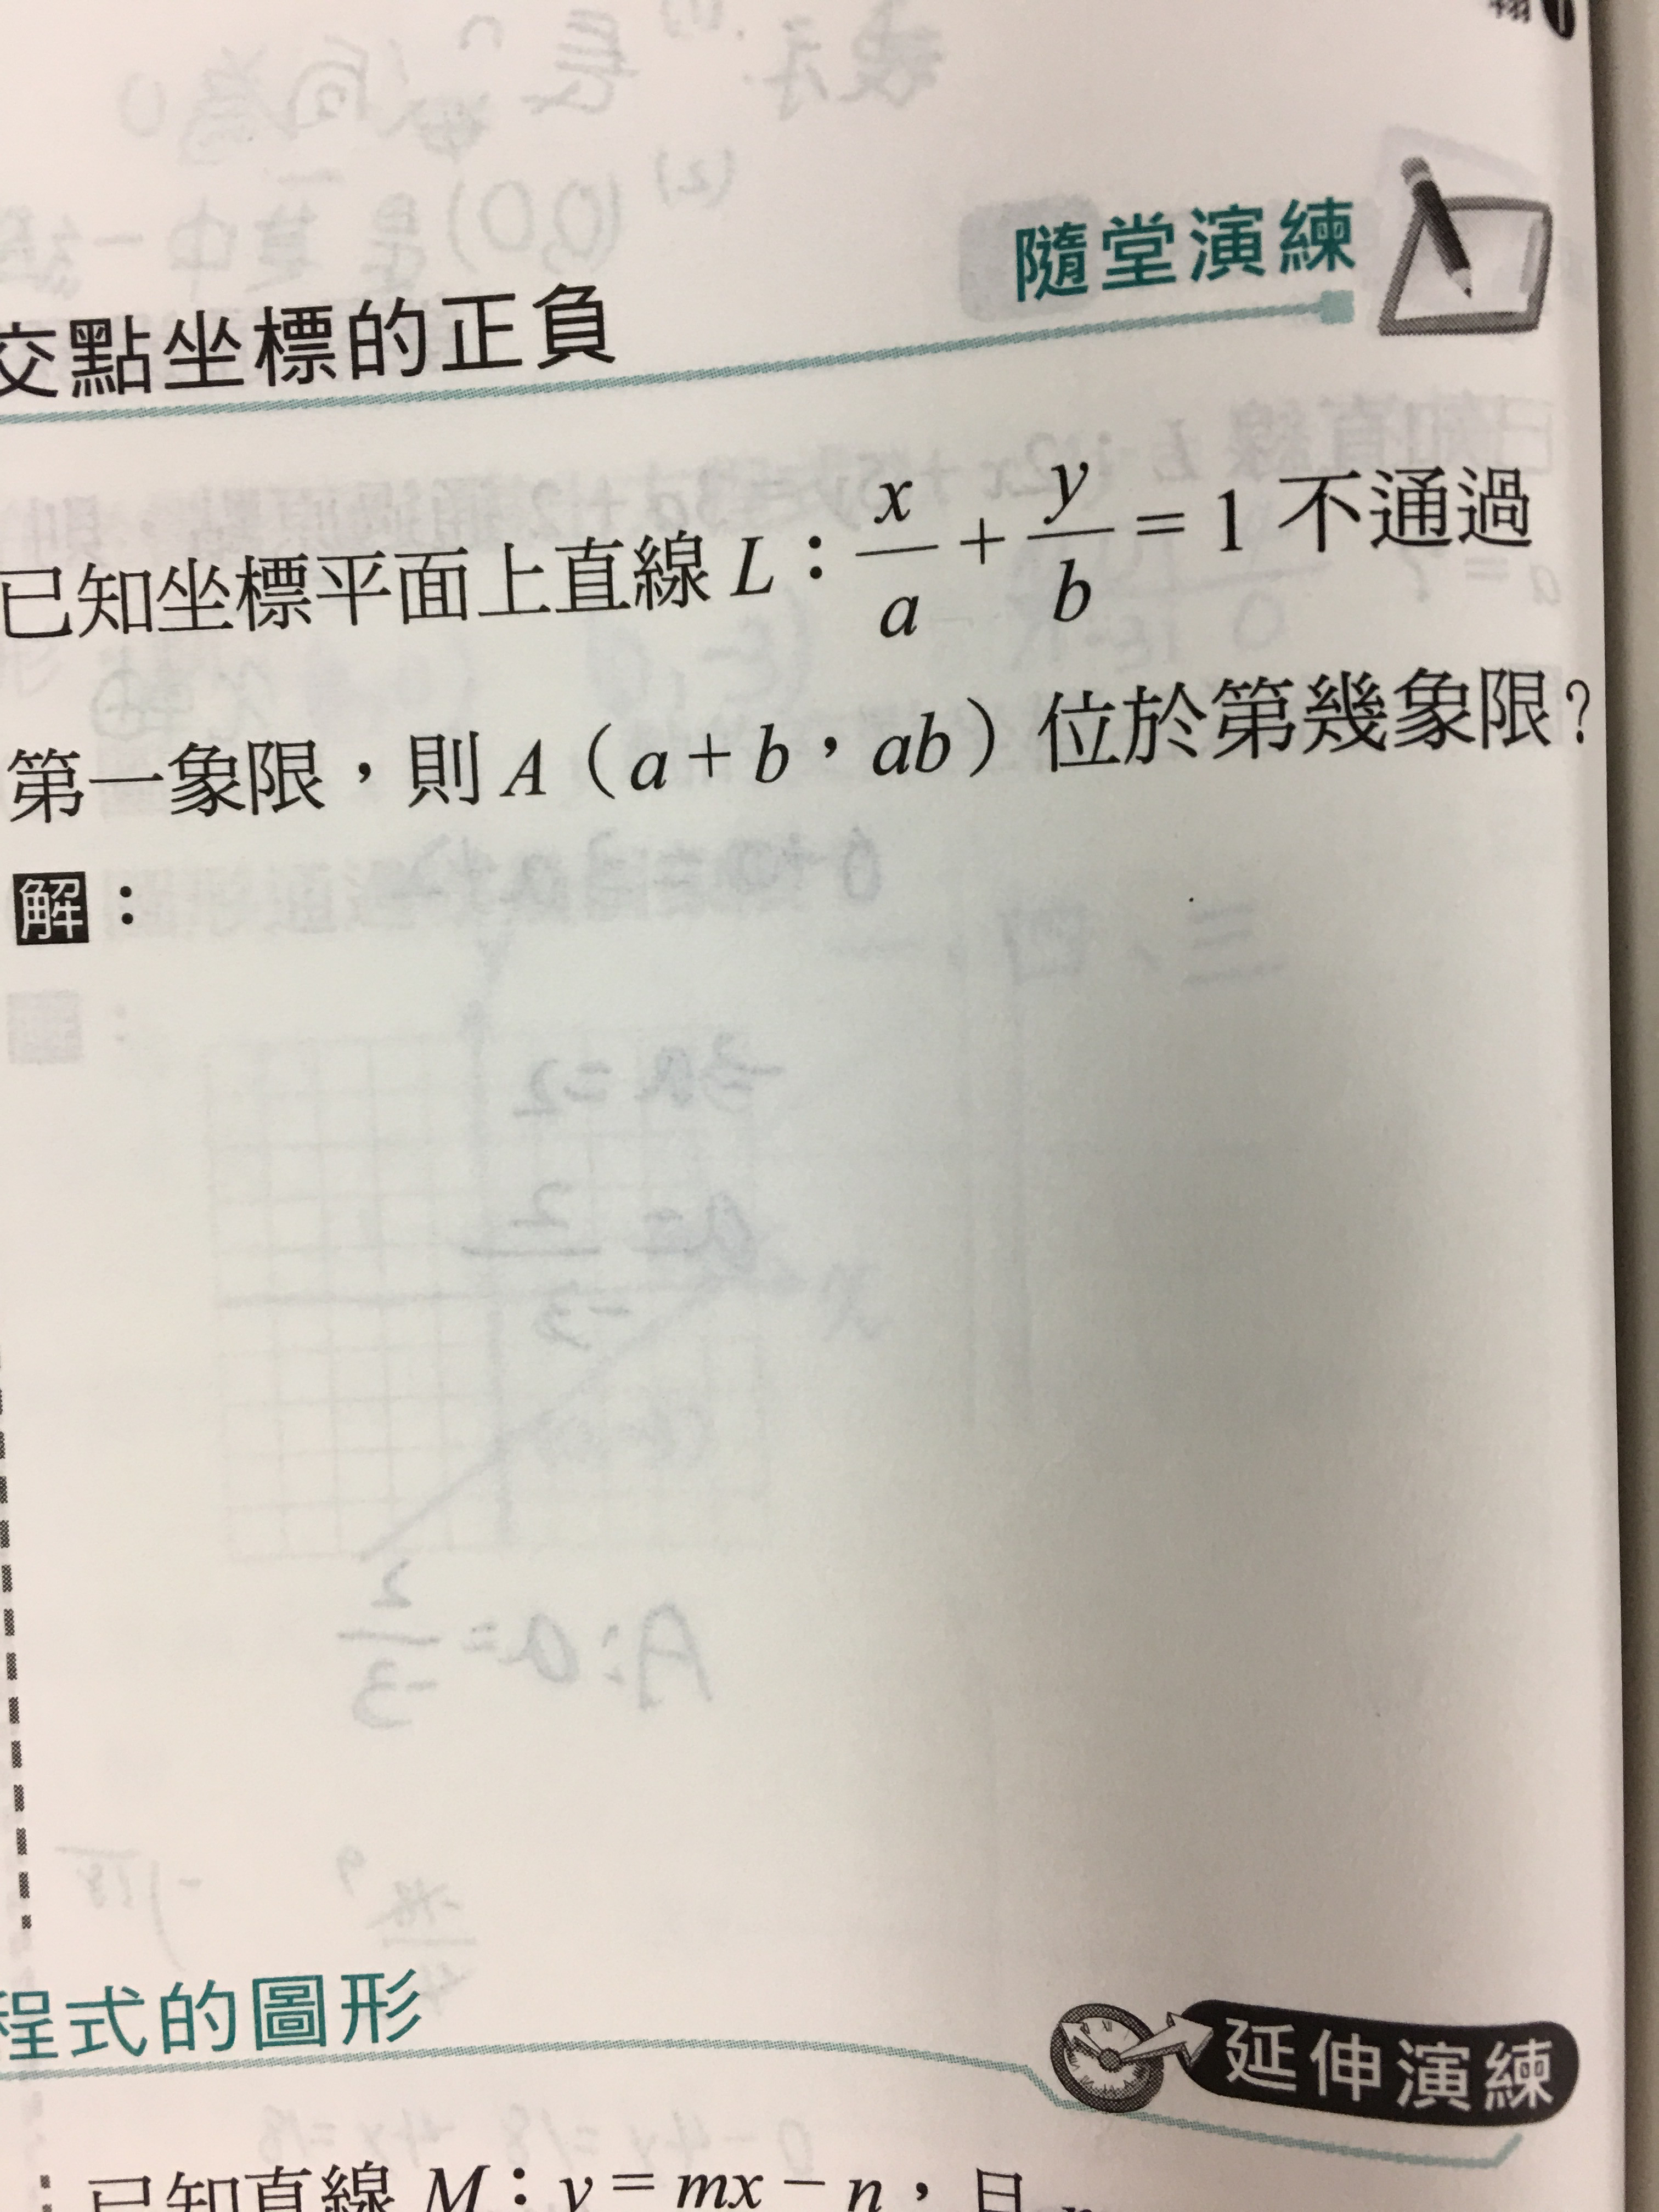 隨堂演練
交點坐標的正負
已知坐標平面上直線 L：x/a + y/b = 1 不通過
第一象限，則 A（a + b，ab）位於第幾象限？
解：
程式的圖形
延伸演練
已知直線 M：y = mx − n，且